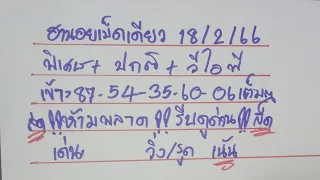 ฮานอยเม็ดเดียว 18/2/66
พิเศษ + ปกติ + วีไอพี
เข้า=87-54-35-60-06เต็มๆ
สด!!ห้ามพลาด!!รีบดูด่วน!!สด
เด่น วิ่ง/รูด เน้น